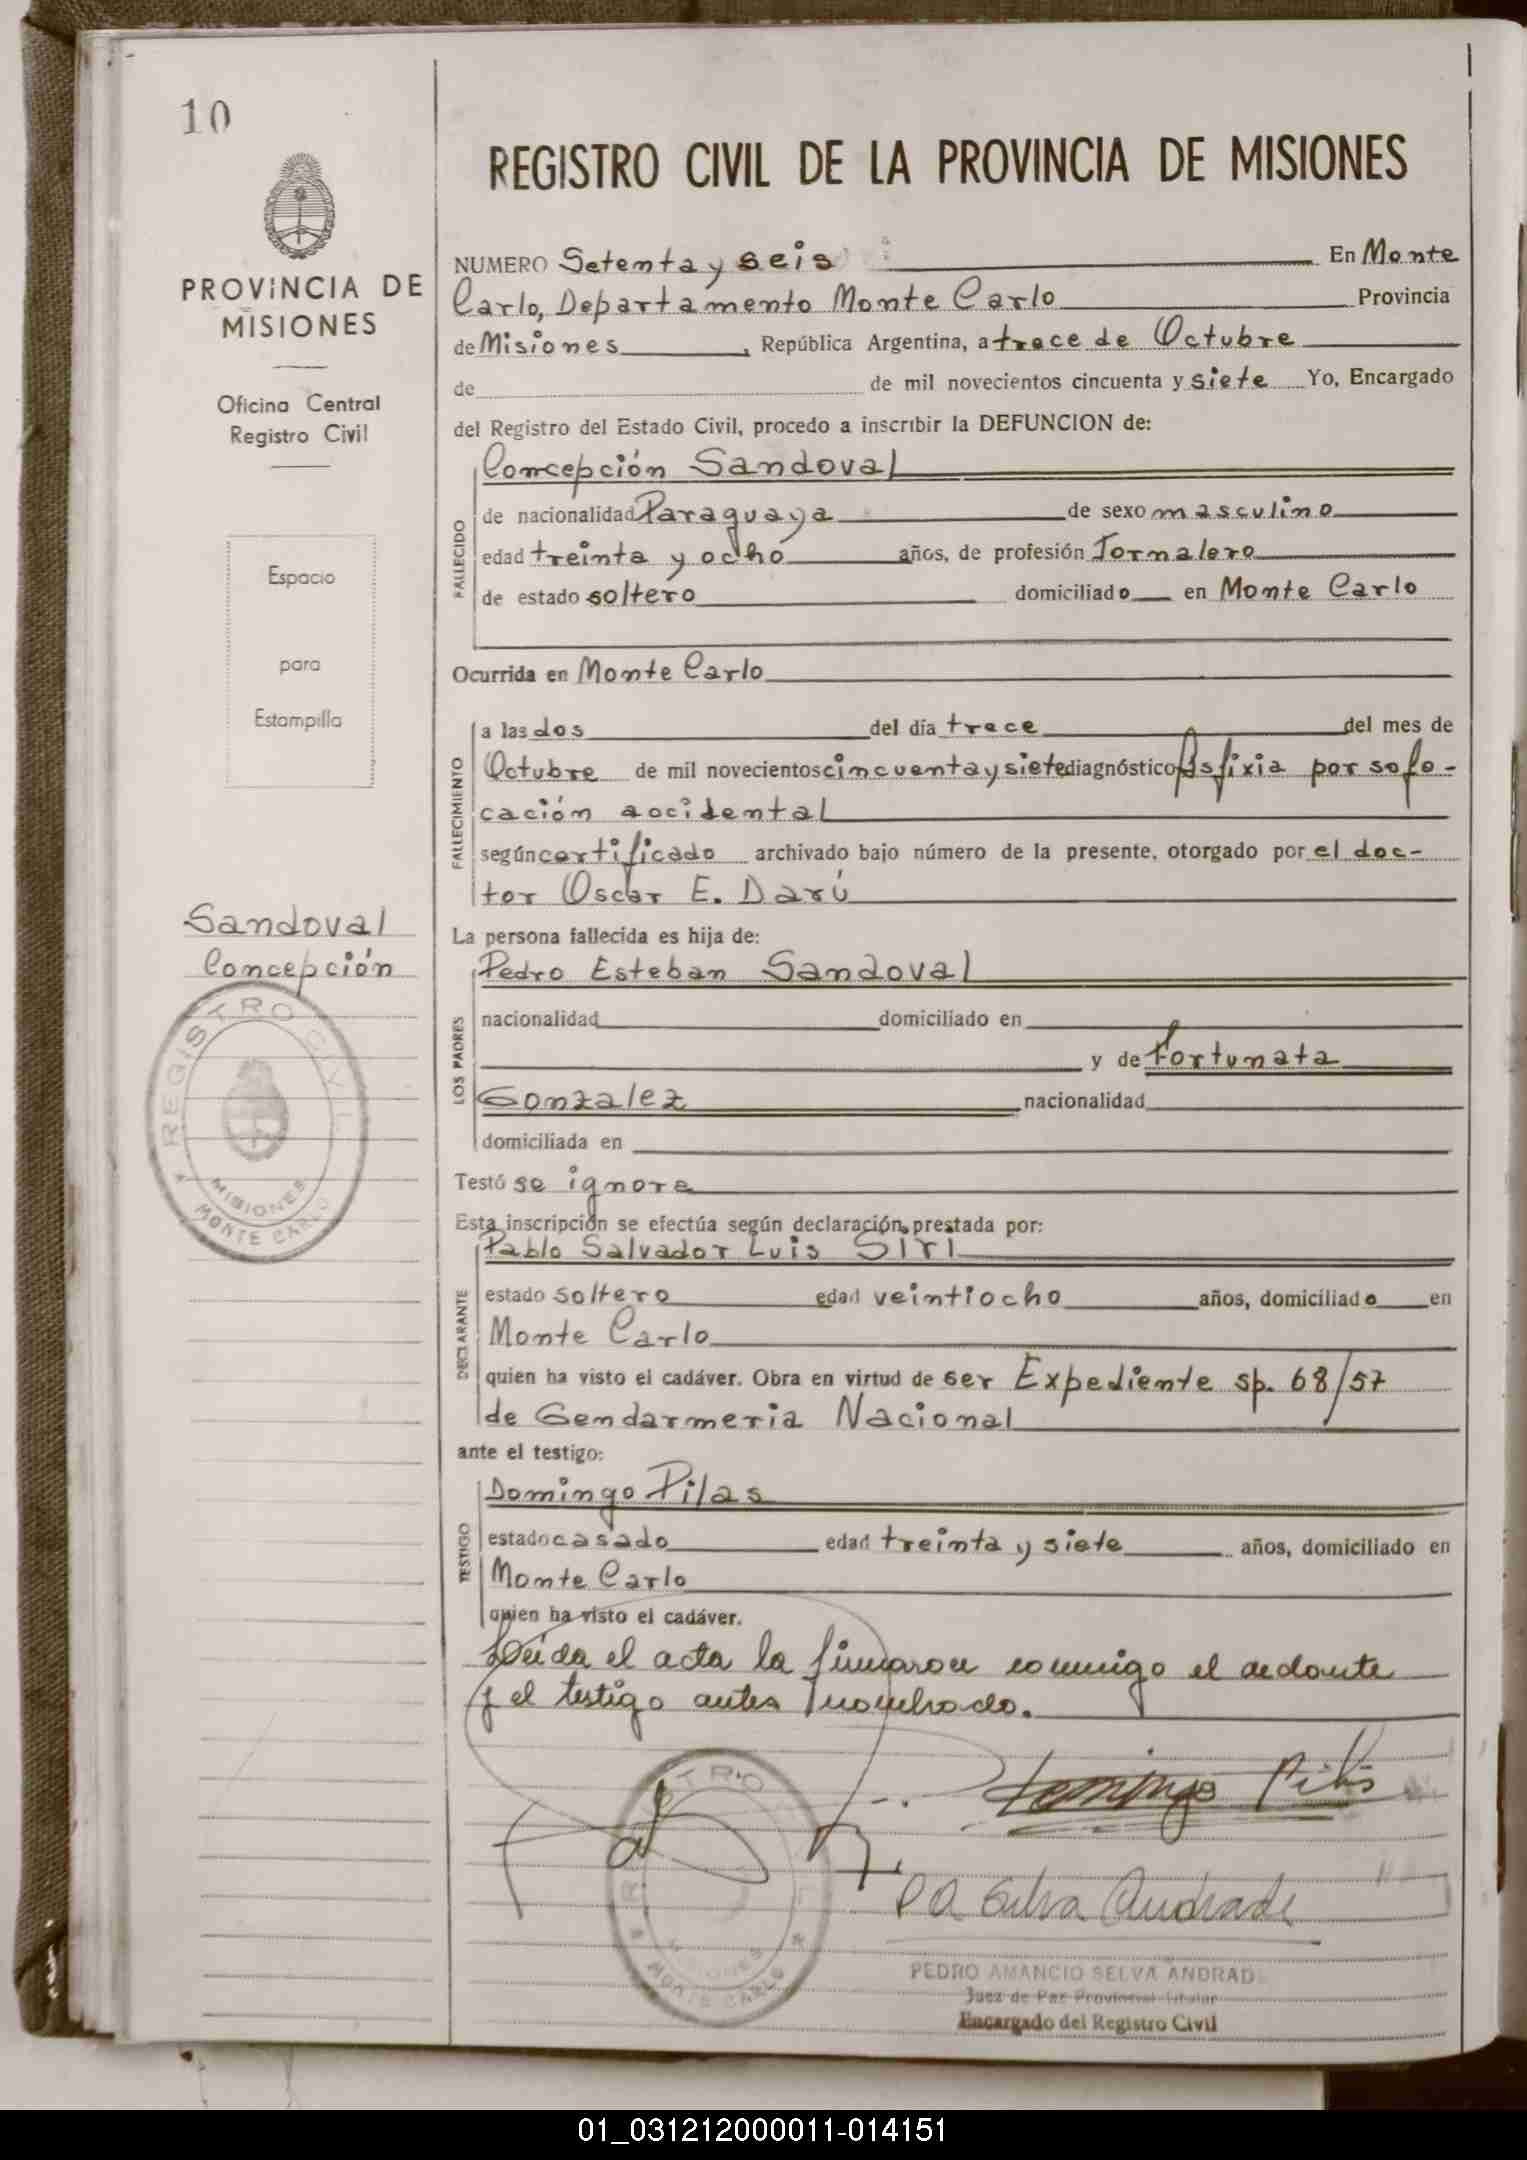 10
PROVINCIA DE
MISIONES
Oficina Central
Registro Civil
Espacio
para
Estampilla
Sandoval
Concepción
REGISTRO CIVIL
MISIONES
MONTE CARLO
REGISTRO CIVIL DE LA PROVINCIA DE MISIONES
NUMERO Setenta y seis En Monte
Carlo, Departamento Monte Carlo Provincia
de Misiones, República Argentina, a trece de Octubre
de de mil novecientos cincuenta y siete Yo, Encargado
del Registro del Estado Civil, procedo a inscribir la DEFUNCION de:
FALLECIDO
Concepción Sandoval
de nacionalidad Paraguaya de sexo masculino
edad treinta y ocho años, de profesión Jornalero
de estado soltero domiciliado en Monte Carlo
Ocurrida en Monte Carlo
FALLECIMIENTO
a las dos del día trece del mes de
Octubre de mil novecientos cincuenta y siete diagnóstico Asfixia por sofo-
cación accidental
según certificado archivado bajo número de la presente, otorgado por el doc-
tor Oscar E. Darú
La persona fallecida es hija de:
LOS PADRES
Pedro Esteban Sandoval
nacionalidad domiciliado en
y de Fortunata
Gonzalez nacionalidad
domiciliada en
Testó se ignora
Esta inscripción se efectúa según declaración prestada por:
DECLARANTE
Pablo Salvador Luis SIRI
estado soltero edad veintiocho años, domiciliado en
Monte Carlo
quien ha visto el cadáver. Obra en virtud de ser Expediente sp. 68/57
de Gendarmeria Nacional
ante el testigo:
TESTIGO
Domingo Pilas
estado casado edad treinta y siete años, domiciliado en
Monte Carlo
quien ha visto el cadáver.
Leída el acta la firmaron conmigo el declarante
y el testigo antes nombrado.
Domingo Pilas
P A Selva Andrade
MONTE CARLO
PEDRO AMANCIO SELVA ANDRADE
Juez de Paz Provincial Titular
Encargado del Registro Civil
01_031212000011-014151